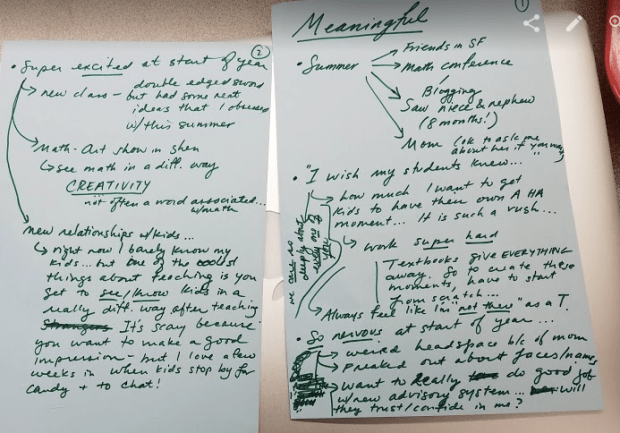 ①
Meaningful
• Summer → Friends in SF
→ Math conference
Blogging
Saw niece & nephew
(8 months!)
Mom (ok to ask me
about her if you may
• "I wish my students knew...
↳ how much I want to get
kids to have their own A HA
moment... It is such a rush...
↳ work super hard
Textbooks give EVERYTHING
away. So to create these
moments, have to start
from scratch...
we care so
deeply about
every one of
you
→ Always feel like I'm "not there" as a T.
• So nervous at start of year...
→ weird headspace b/c of mom
→ freaked out about faces/names
→ want to really do good job
w/new advisory system... will
they trust/confide in me?
②
• Super excited at start of year
→ new class - double edged sword
but had some neat
ideas that I obsessed
w/this summer
→ Math-Art show in shen
↳ see math in a diff. way
CREATIVITY
not often a word associated...
w/math
new relationships w/kids...
↳ right now I barely know my
kids... but one of the coolest
things about teaching is you
get to see/know kids in a
really diff. way after teaching
Strangers It's scary because
you want to make a good
impression - but I love a few
weeks in when kids stop by for
candy + to chat!